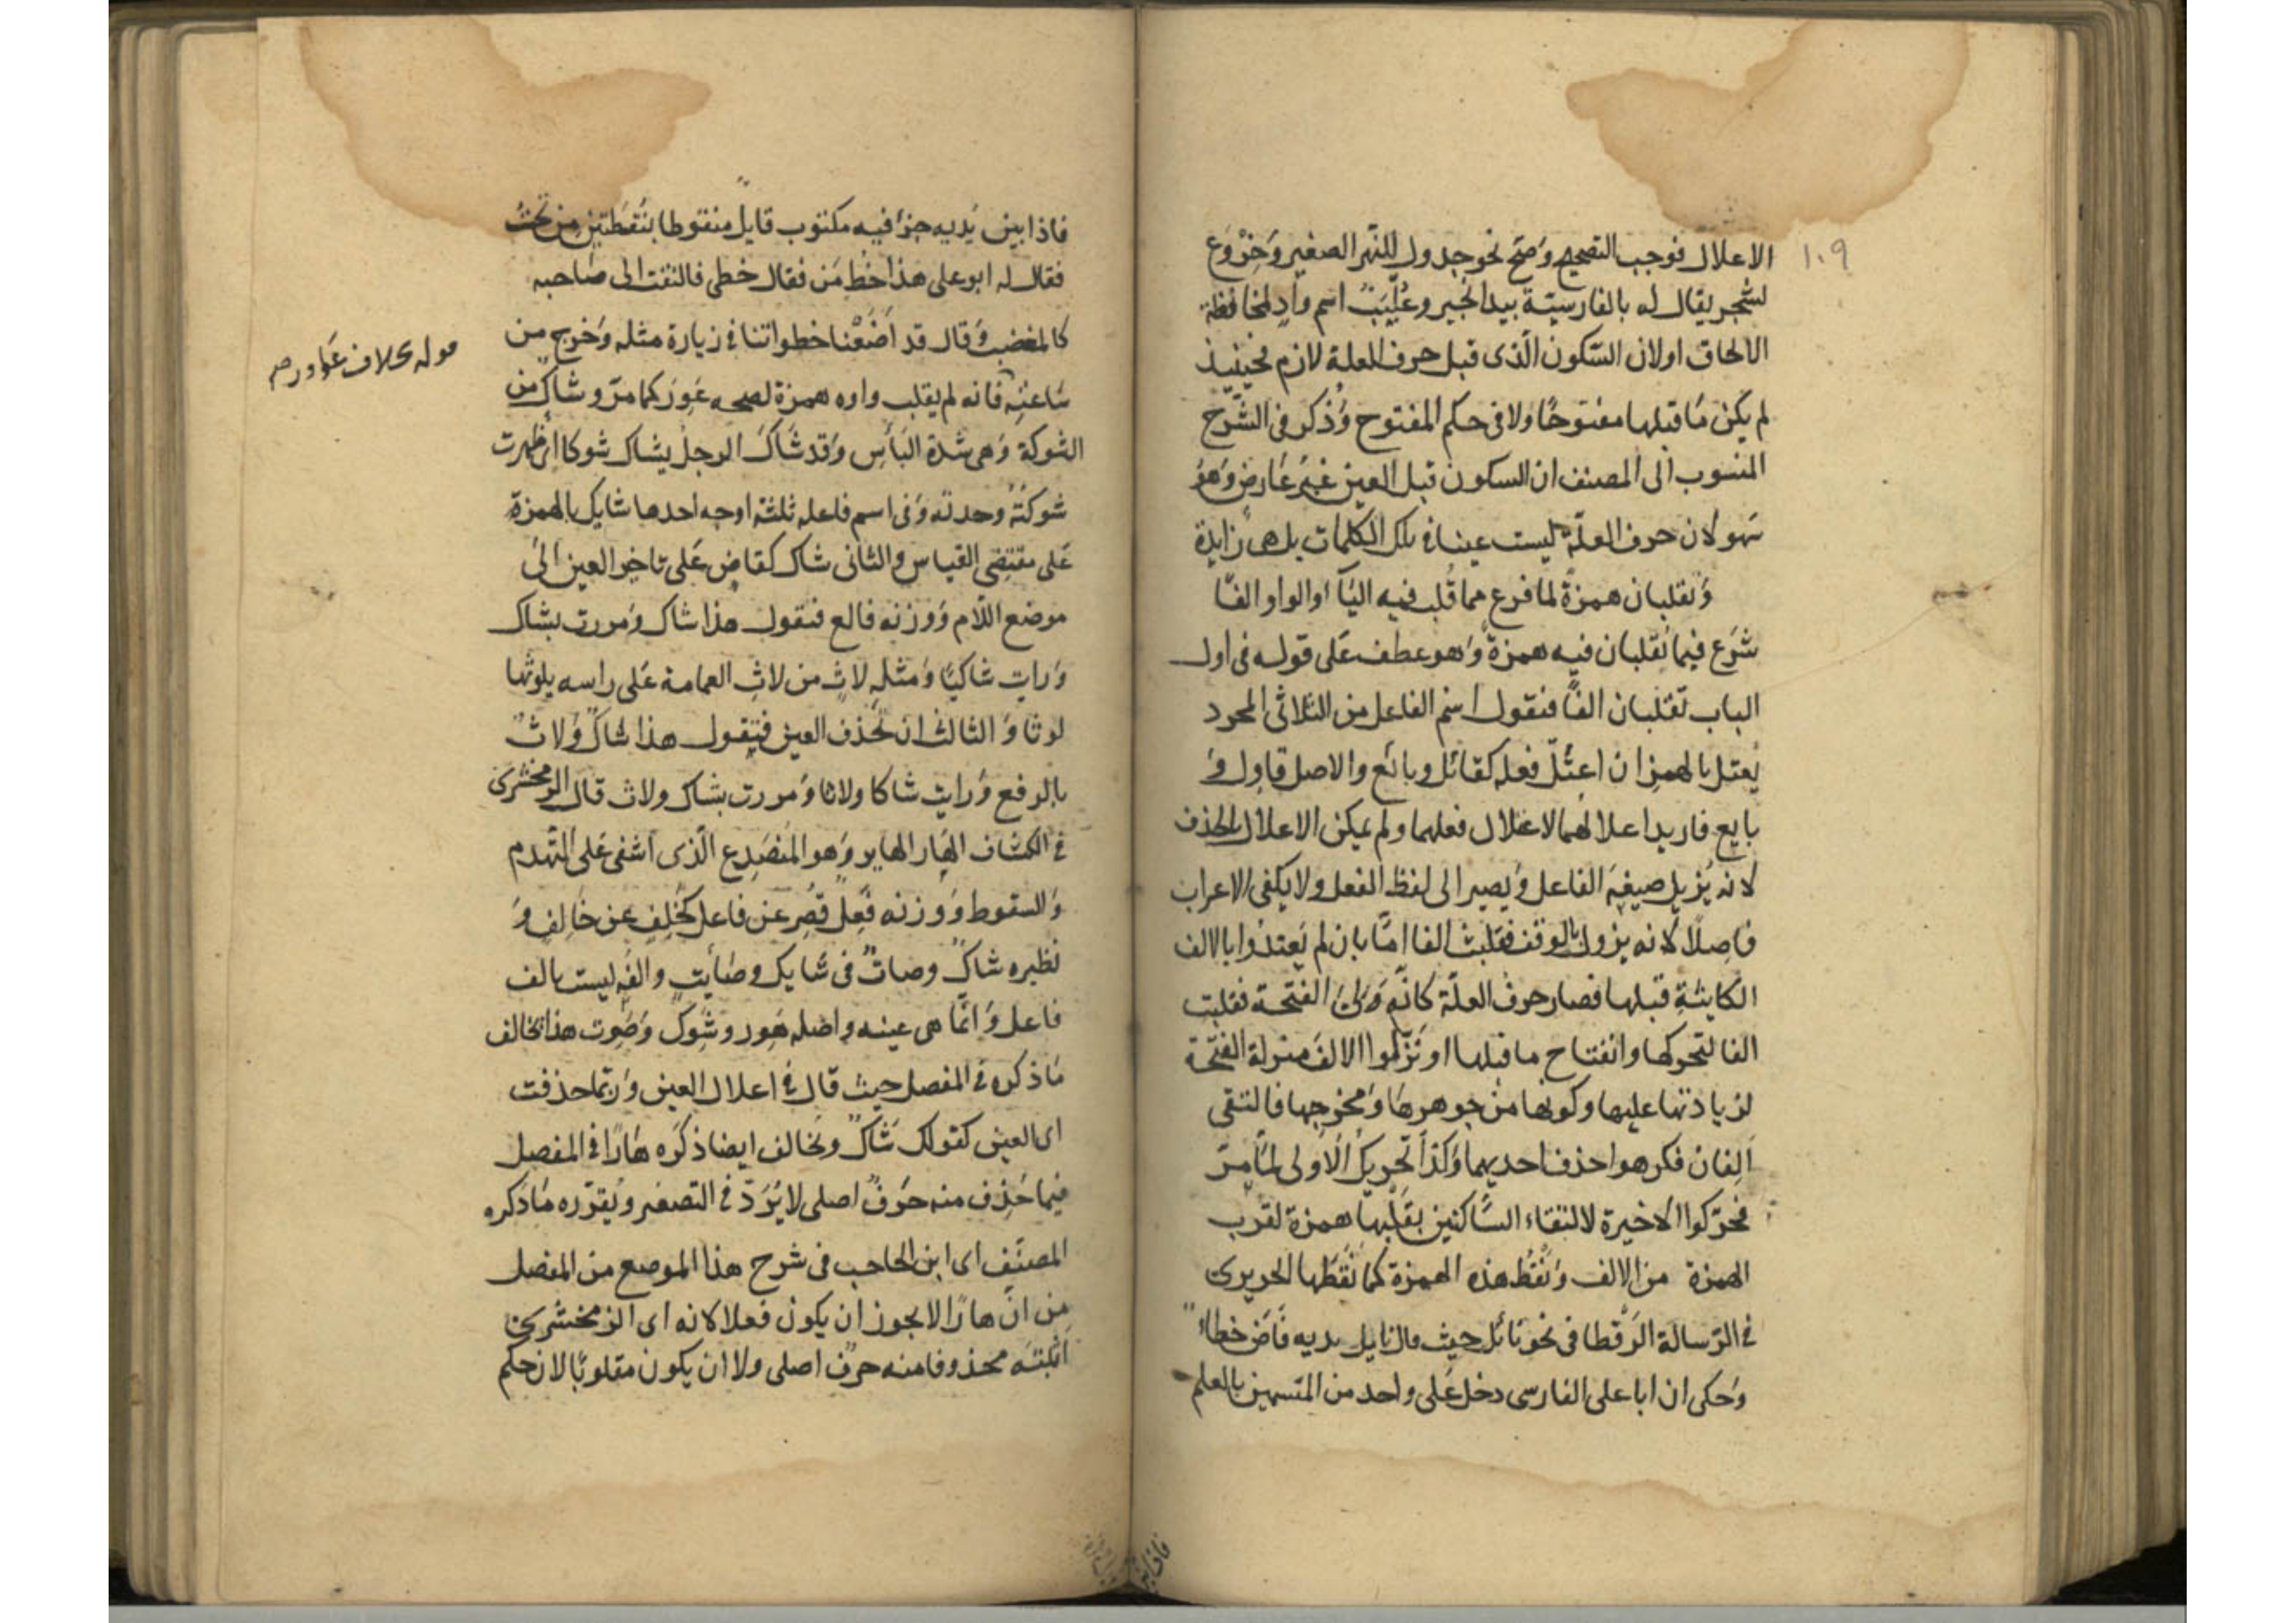 ١٠٩
الاعلال فوجب التصحيح وصح نحو جدول للنهر الصغير وخروع
لشجر يقال له بالفارسية بيد انجير وعُلْيَب اسم وادٍ لمحافظة
الالحاق او لان السّكون الّذى قبل حرف العلة لازم فحينئذ
لم يكن مَا قبلها مفتوحًا ولا فى حكم المفتوح وذُكر فى الشّرح
المنسوب الى المصنف ان السكون قبل العين غير عَارض وَهو
سَهو لان حرف العلّة ليست عينا فى تلك الكلمات بل هى زايدة
وَتقلبان همزةً لما فرع مما قُلب فيه اليَآ او الواو الفًا
شَرَع فيما تقلبان فيه همزةً وَهو عطف عَلى قوله فى اول
الباب تقلبان الفًا فنقول اسم الفاعل من الثلاثى المجرد
يُعتل بالهمز ان اعتُلّ فعله كقائل وبائع والاصل قاوِل وَ
بايع فاريد اعلالهما لاعلال فعلهما ولم يمكن الاعلال بالحذف
لانه يُزيل صيغة الفاعل وَيصير الى لفظ الفعل ولا يكفى الاعراب
فاصِلًا لانه يزول بالوقف فقلبت الفا امّا بان لم يَعتدّوا بالالف
الكاينةِ قبلها فصار حرف العلّة كانّه وَلِىَ الفتحة فقلبت
الفا لتحركها وانفتاح ما قبلها او نَزّلوا الالف منزلة الفتحة
لزيادتها عليها وكونها من جوهرها وَمخرجها فالتقى
اَلِفان فكرهوا حذف احديهما وَكذا تحريك الاولى لمَا مرّ
فحرّكوا الاخيرة لالتقاء السَّاكنين بقَلْبها همزة لقرب
الهمزة من الالف وَنَقْطُ هذه الهمزة كما نَقَطها الحريرى
فى الرّسالة الرَقْطا فى نحو نائل حيث قال نايل يديه فَاض خطأ
وَحكى ان ابا على الفارسى دخل عَلى واحد من المتسمين بالعلم
فاذا بين يَديه جزء فيه مكتوب قايل منقوطا بنُقطتين من تحت
فقال له ابو على هذا خط مَن فقال خطى فالتفت الى صاحبه
كالمغضب وَقال قد اَضَعْنا خطواتنا فى زيارة مثله وَخرج من
سَاعته فانه لم يقلب واوه همزة لصحه عَوِرَ كما مرّ وشاكٍ من
الشوكة وَهى شدة البَأس وَقد شَاكَ الرجل يشاك شوكا اى ظهرت
شوكتُهُ وحدته وَفى اسم فاعله ثلثة اوجه احدها شايك بالهمزة
عَلى مقتضى القياس والثانى شاك كقاضٍ عَلى تاخير العين الى
موضع اللّام وَوزنه فالع فنقول هذا شاك وَمررت بشاك
وَرايت شاكيًا وَمثله لاثٍ من لاث العمامة عَلى راسه يلوثها
لوثا وَالثالث ان تحذف العين فتقول هذا شاكٌ وَلاثٌ
بالرفع وَرايت شاكا ولاثا وَمررت بشاك ولاث قال الزمخشرى
فى الكشاف الهَار الهاير وَهو المُنصَدِع الّذى اشفى عَلى التّهدم
وَالسقوط وَوزنه فَعِلٌ قُصِر عن فاعل كخَلِفٍ عن خَالِف وَ
نظيره شاكٌ وصاتٌ فى شَايك وصَايت والفُه ليست بالف
فاعل وَانّما هى عينه واصله هَوِر وشَوِك وَصَوِت هذا يخالف
مَا ذكره فى المفصل حيث قال فى اعلال العين وَربّما حذفت
اى العين كقولك شَاكٌ ويخالف ايضا ذكرَه هَارًا فى المفصل
فيما حُذِف منه حَرفٌ اصلى لا يُرَدّ فى التصغير ويُقرّره مَا ذكره
المصنّف اى ابن الحاجب فى شرح هذا الموضع من المفصل
مِن انّ هارًا لا يجوز ان يكون فعلا لانه اى الزمخشرى
اَثبته محذوفا منه حرف اصلى ولا ان يكون مقلوبًا لان حكم
قوله بخلاف عَاور